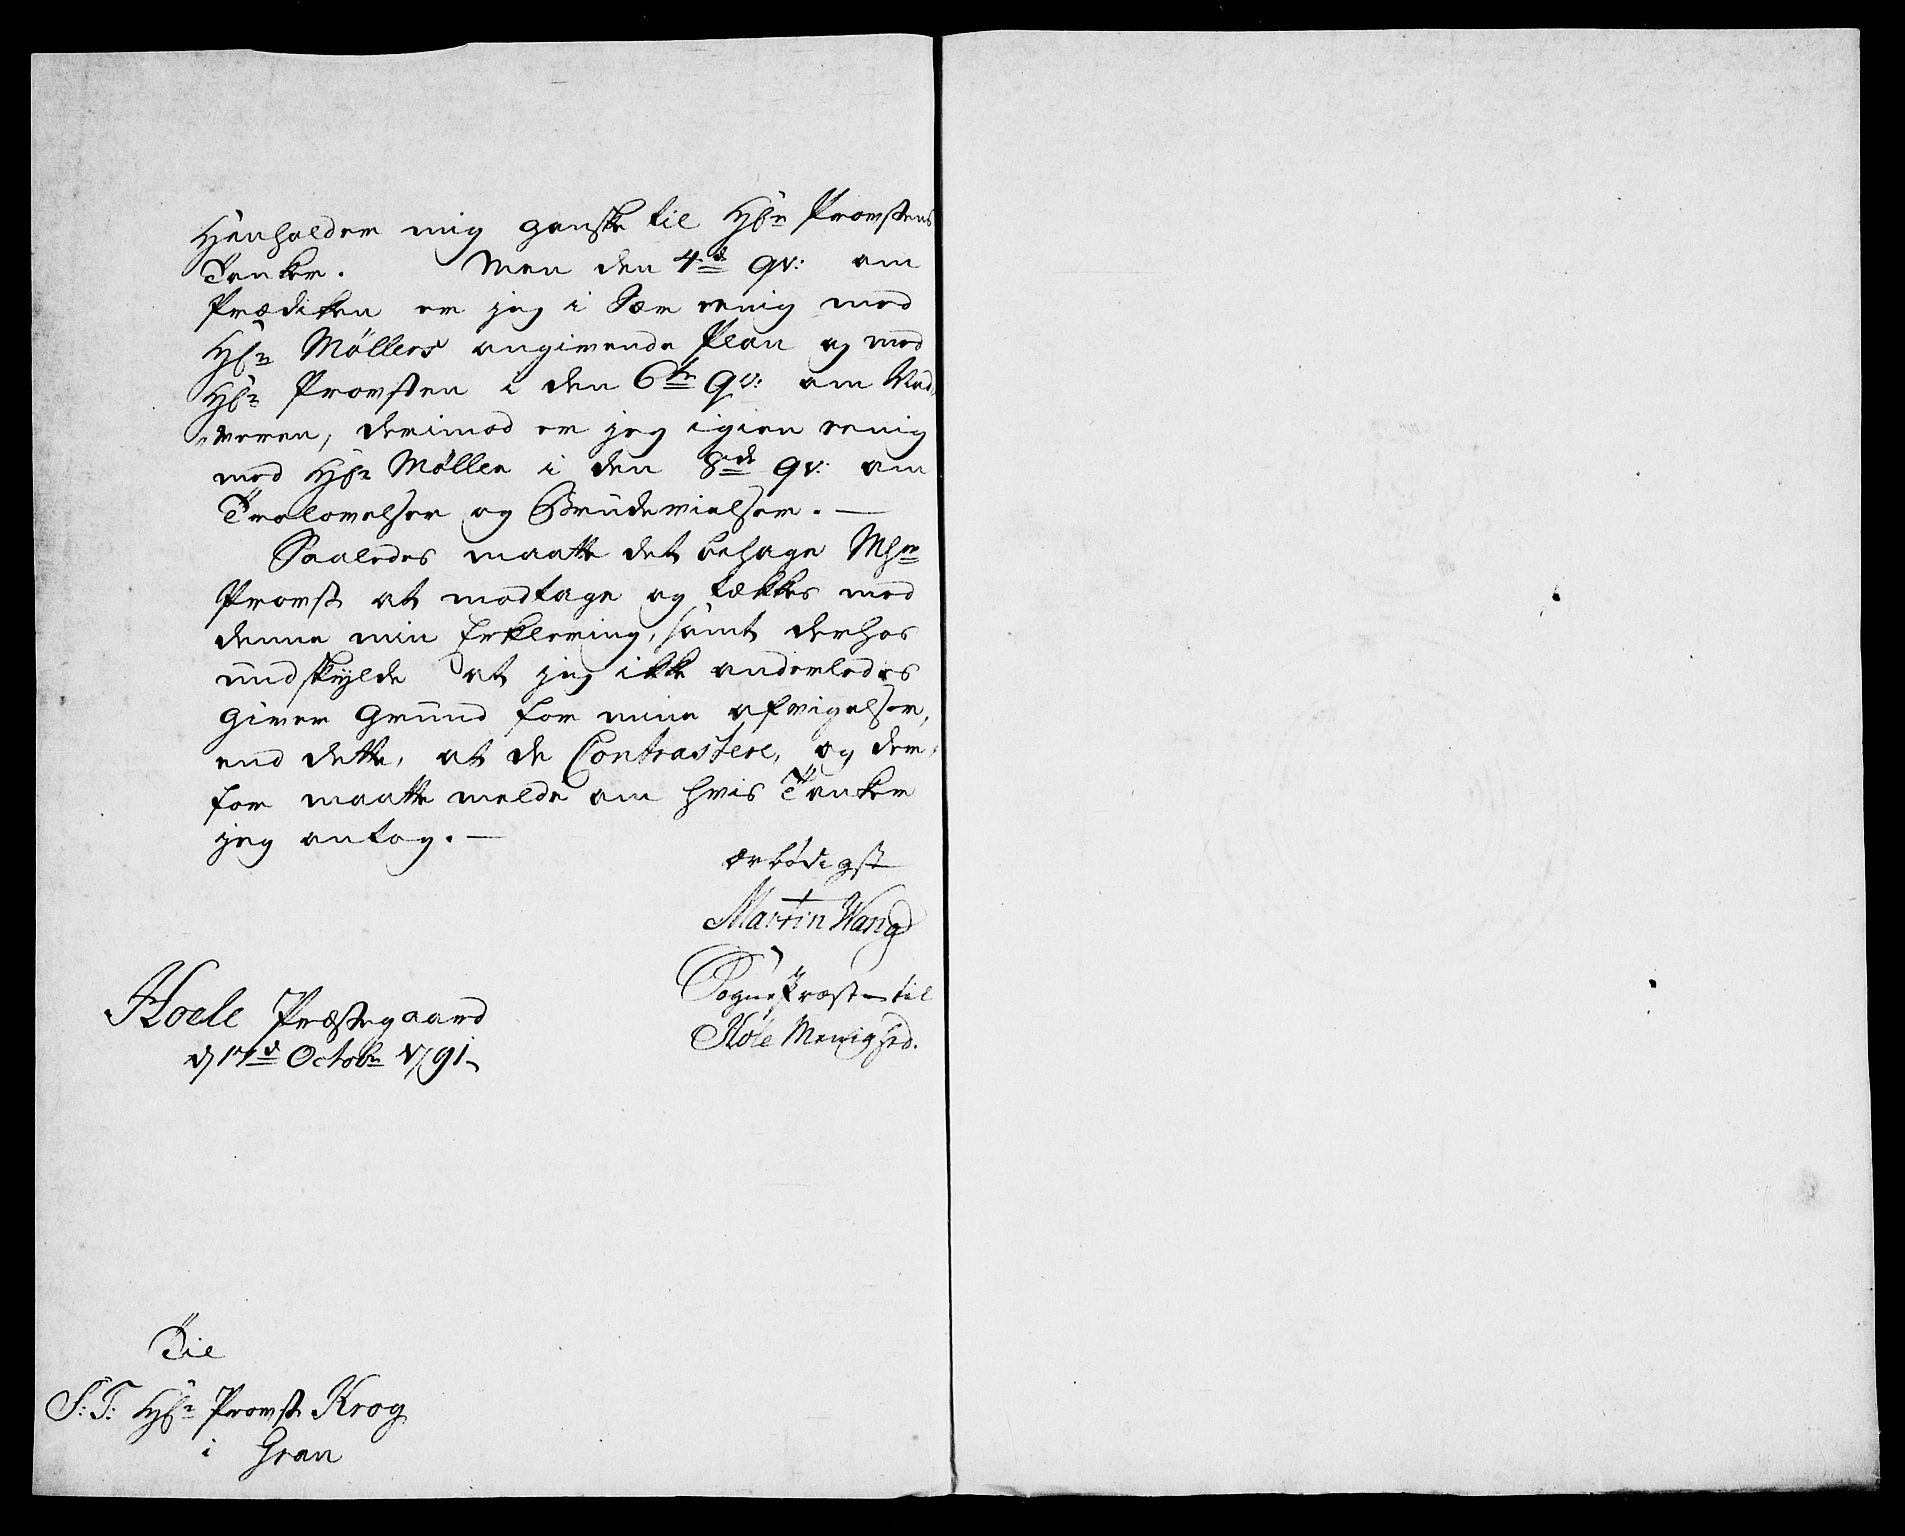 Henholder mig ganske til Hr Provstens
Tanker. Men den 4de qv: om
Prædiken er jeg i Sær eenig med
Hr Møllers angivende Plan og med
Hr Provsten i den 6te qv: om Nad¬
veren, derimod er jeg igien eenig
med Hr Møller i den 8de qv: om
Trolovelser og Brudevielser. —
Saaledes maatte det behage Mhr
Provst at modtage og tækkes med
denne min Erklering, samt derhos
undskylde at jeg ikke anderledes
giver Grund for mine afvigelser,
end dette, at de Contrastere, og der¬
for maatte melde om hvis Tanker
jeg antog. —
ærbødigst
Martin Wang
Sogne Præst til
Hole Menighed.
Hoele Præstegaard
d 17d Octobr 1791
Til
S: T: Hr Provst Krog
i Gran